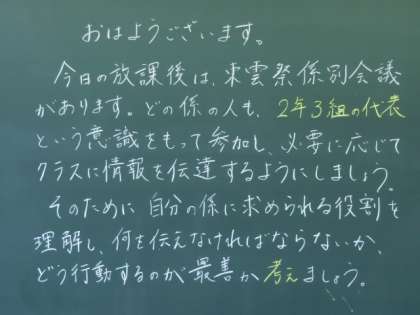 おはようございます。
今日の放課後は、東雲祭係別会議
があります。どの係の人も、2年3組の代表
という意識をもって参加し、必要に応じて
クラスに情報を伝達するようにしましょう。
そのために自分の係に求められる役割を
理解し、何を伝えなければならないか、
どう行動するのが最善か考えましょう。